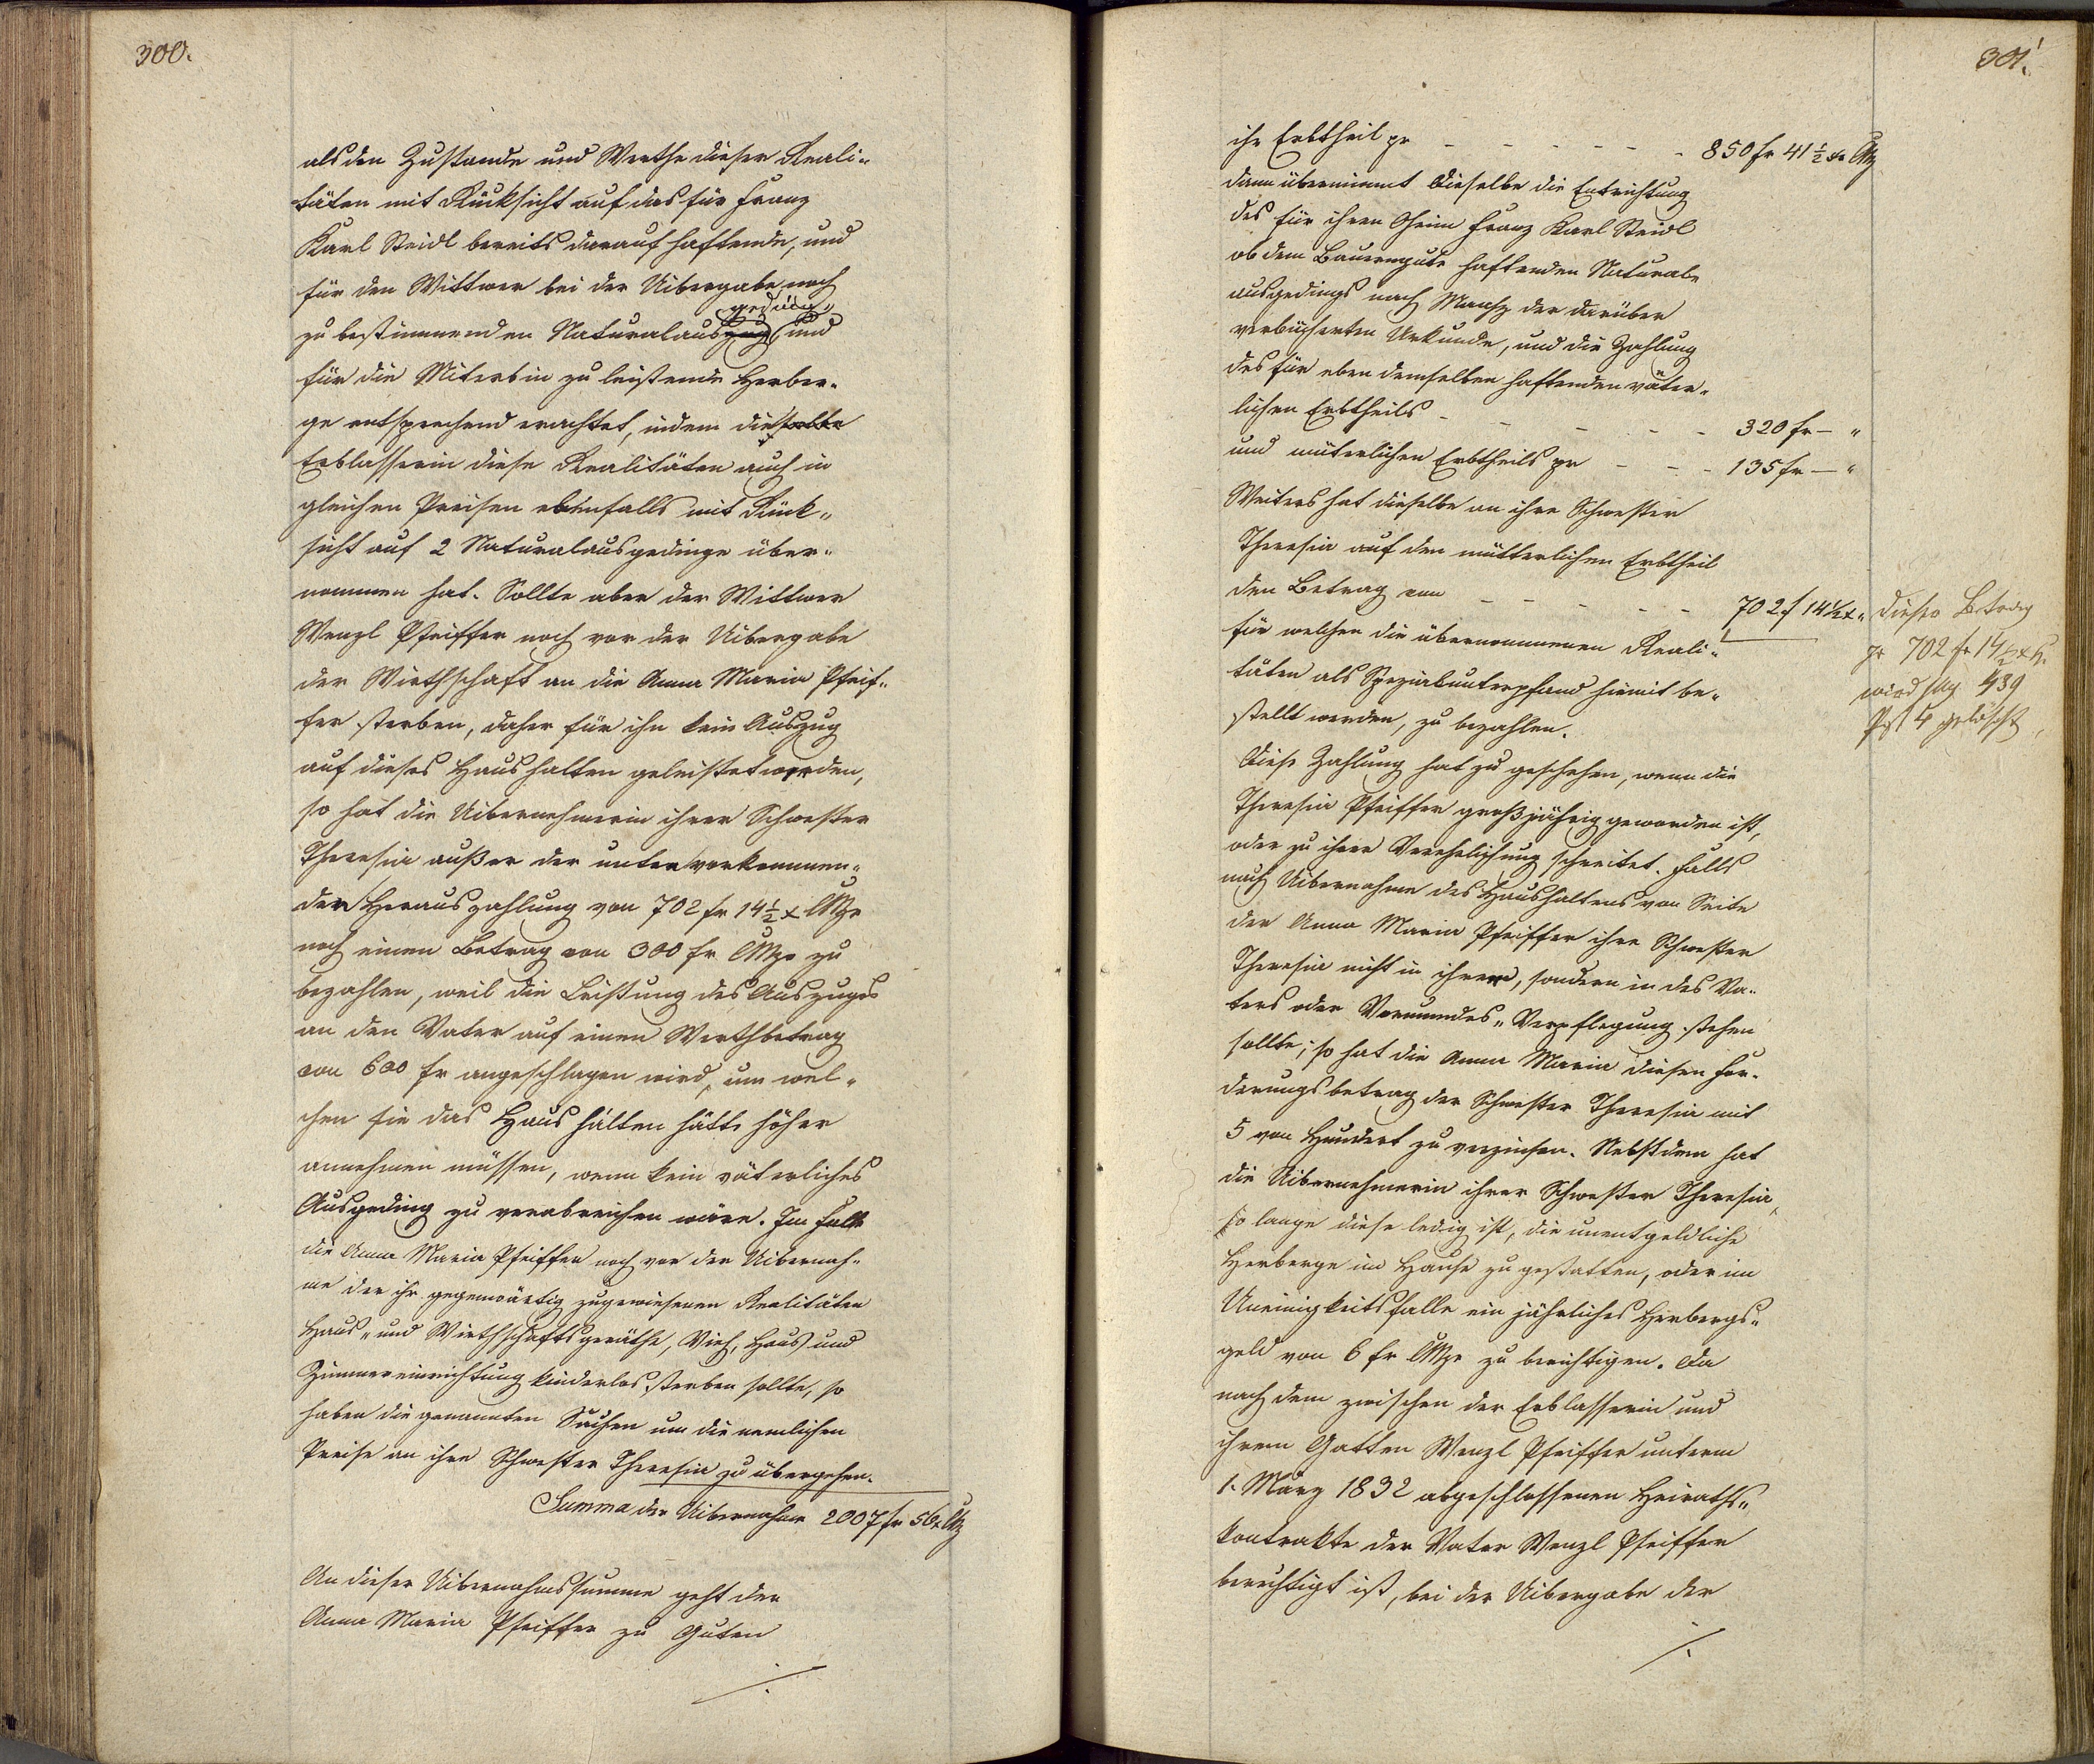 300.
als den Zustande und Werthe dieser Reali-
täten mit Rücksicht auf das für Franz
Karl Steidl bereits darauf haftende, und
für den Wittwer bei der Uibergabe noch
geding
zu bestimmenden Naturalauszug, und
für die Miterbin zu leistende Herber-
ge entsprechend erachtet, indem dieselbe
Erblasserin diese Realitäten auch in
gleichen Preisen ebenfalls mit Rück-
sicht auf 2 Naturalausgedinge über-
nommen hat. Sollte aber der Wittwer
Wenzl Pfeiffer noch vor der Uibergabe
der Wirthschaft an die Anna Maria Pfeif-
fer sterben, daher für ihn kein Auszug
auf dieses Haushalten geleistet werden,
so hat die Uibernehmerin ihrer Schwester
Theresia außer der unten vorkommen-
den Herauszahlung von 702 fr 14½ x CMze
noch einen Betrag von 300 fr CMze zu
bezahlen, weil die Leistung des Auszuges
an den Vater auf einen Werthbetrag
von 600 fr angeschlagen wird, um wel-
chen sie das Haushalten hätte höher
annehmen müssen, wenn kein väterliches
Ausgeding zu verabreichen wäre. Im Falle
die Anna Maria Pfeiffer noch vor der Uibernah-
me der ihr gegenwärtig zugewiesenen Realitäten
Haus- und Wirthschaftsgeräthe, Vieh, Haus und
Zimmereinrichtung kinderlos sterben sollte, so
haben die genannten Sachen um die nemlichen
Preise an ihre Schwester Theresia zu übergehen.
Summa der Uibernahme 2007 fr 56 x CMz
An dieser Uibernahmssumme geht der
Anna Maria Pfeiffer zu Guten
./.
301.
ihr Erbtheil pr - - - - - - 850 fr 41½ x CMz
dann übernimmt dieselbe die Entrichtung
des für ihren Oheim Franz Karl Steidl
ob dem Bauerngute haftenden Natural-
ausgedings nach Maaß der darüber
verbücherten Urkunde, und die Zahlung
des für eben demselben haftenden väter-
lichen Erbtheils - - - - - 320 fr — "
und müterlichen Erbtheils pr - - - 135 fr — "
Weiters hat dieselbe an ihre Schwester
Theresia auf den mütterlichen Erbtheil
den Betrag von - - - - - 702 f 14½ x "
für welchen die übernommenen Reali-
täten als Spezialunterpfand hiemit be-
stellt werden, zu bezahlen.
Diese Zahlung hat zu geschehen, wenn die
Theresia Pfeiffer großjährig geworden ist,
oder zu ihrer Verehelichung schreitet. Falls
nach Uibernahme des Haushaltens von Seite
der Anna Maria Pfeiffer ihre Schwester
Theresia nicht in ihrer, sondern in des Va-
ters oder Vormundes- Verpflegung stehen
sollte; so hat die Anna Maria diesen For-
derungsbetrag der Schwester Theresia mit
5 von Hundert zu verzinsen. Nebstdem hat
die Uibernehmerin ihrer Schwester Theresia,
so lange diese ledig ist, die unentgeldliche
Herberge im Hause zu gestatten, oder im
Uneinigkeitsfalle ein jährliches Herbergs-
geld von 6 fr CMze zu berichtigen. Da
nach dem zwischen der Erblasserin und
ihrem Gatten Wenzl Pfeiffer unterm
1. März 1832 abgeschlossenen Heiraths-
kontrakte der Vater Wenzl Pfeiffer
berechtigt ist, bei der Uibergabe der
./.
Dieser Betrag
pr 702 fr 14½ x
wird pag 439
Post 4 gelöscht